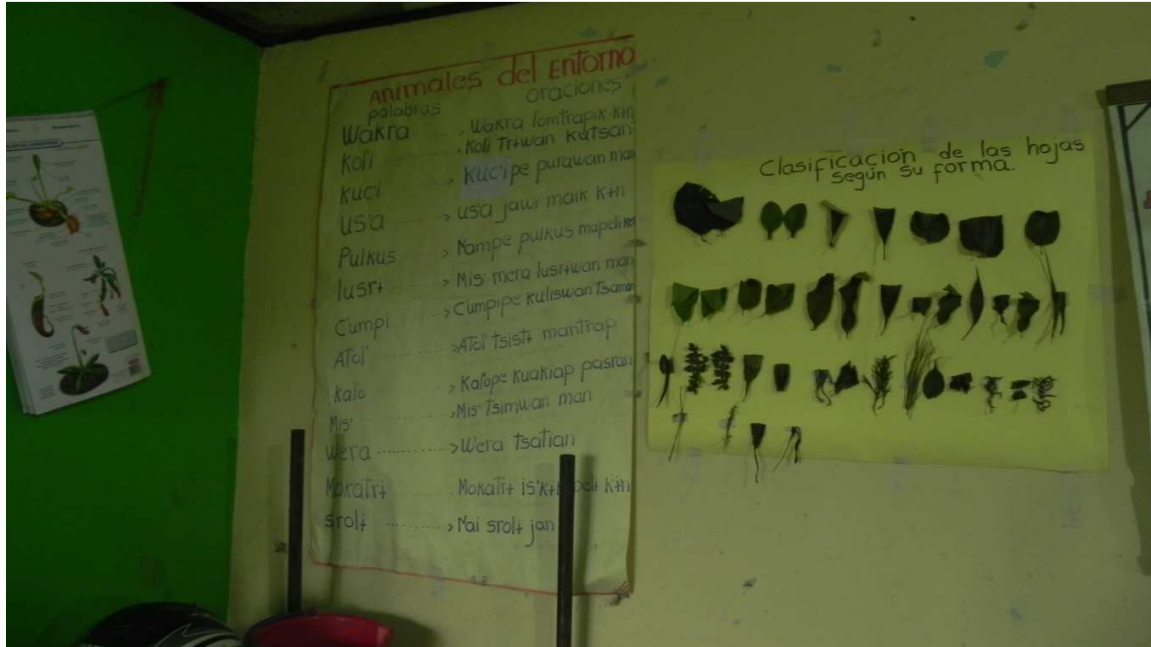 Animales del Entorno
palabras oraciones
Wakra Wakra lomtrapik k+n
Koli Koli Tr+wan kutsan
Kuci Kucipe purawan man
us'a us'a jawi maik k+n
Pulkus Nampe pulkus mapeli
lusr+ Mis' mera lusr+wan man
Cumpi Cumpipe kuliswan
Atol' Atol' tsist+ mantrap
Kalo Kalope kuakiap pasran
Mis' Mis' Tsimwan man
Wera Wera tsatian
Mokatr+ Mokatr+ k+n
srol+ Nai srol+ jan
Clasificación de las hojas
según su forma.